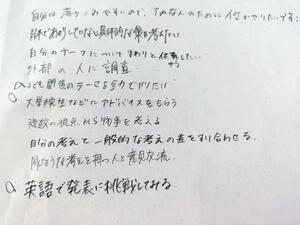 自分は落ちこみやすいので、そんな人のために何かやりたいです!
具体的な対策を考えたい
自分のテーマについてまわりと
外部の人に調査
子ども関係のテーマを全力でやりたい
大学院生などにアドバイスをもらう
複数の視点から物事を考える
自分の考えと一般的な考えの差をすり合わせる。
同じような考えを持つ人と意見交流
英語で発表に挑戦してみる